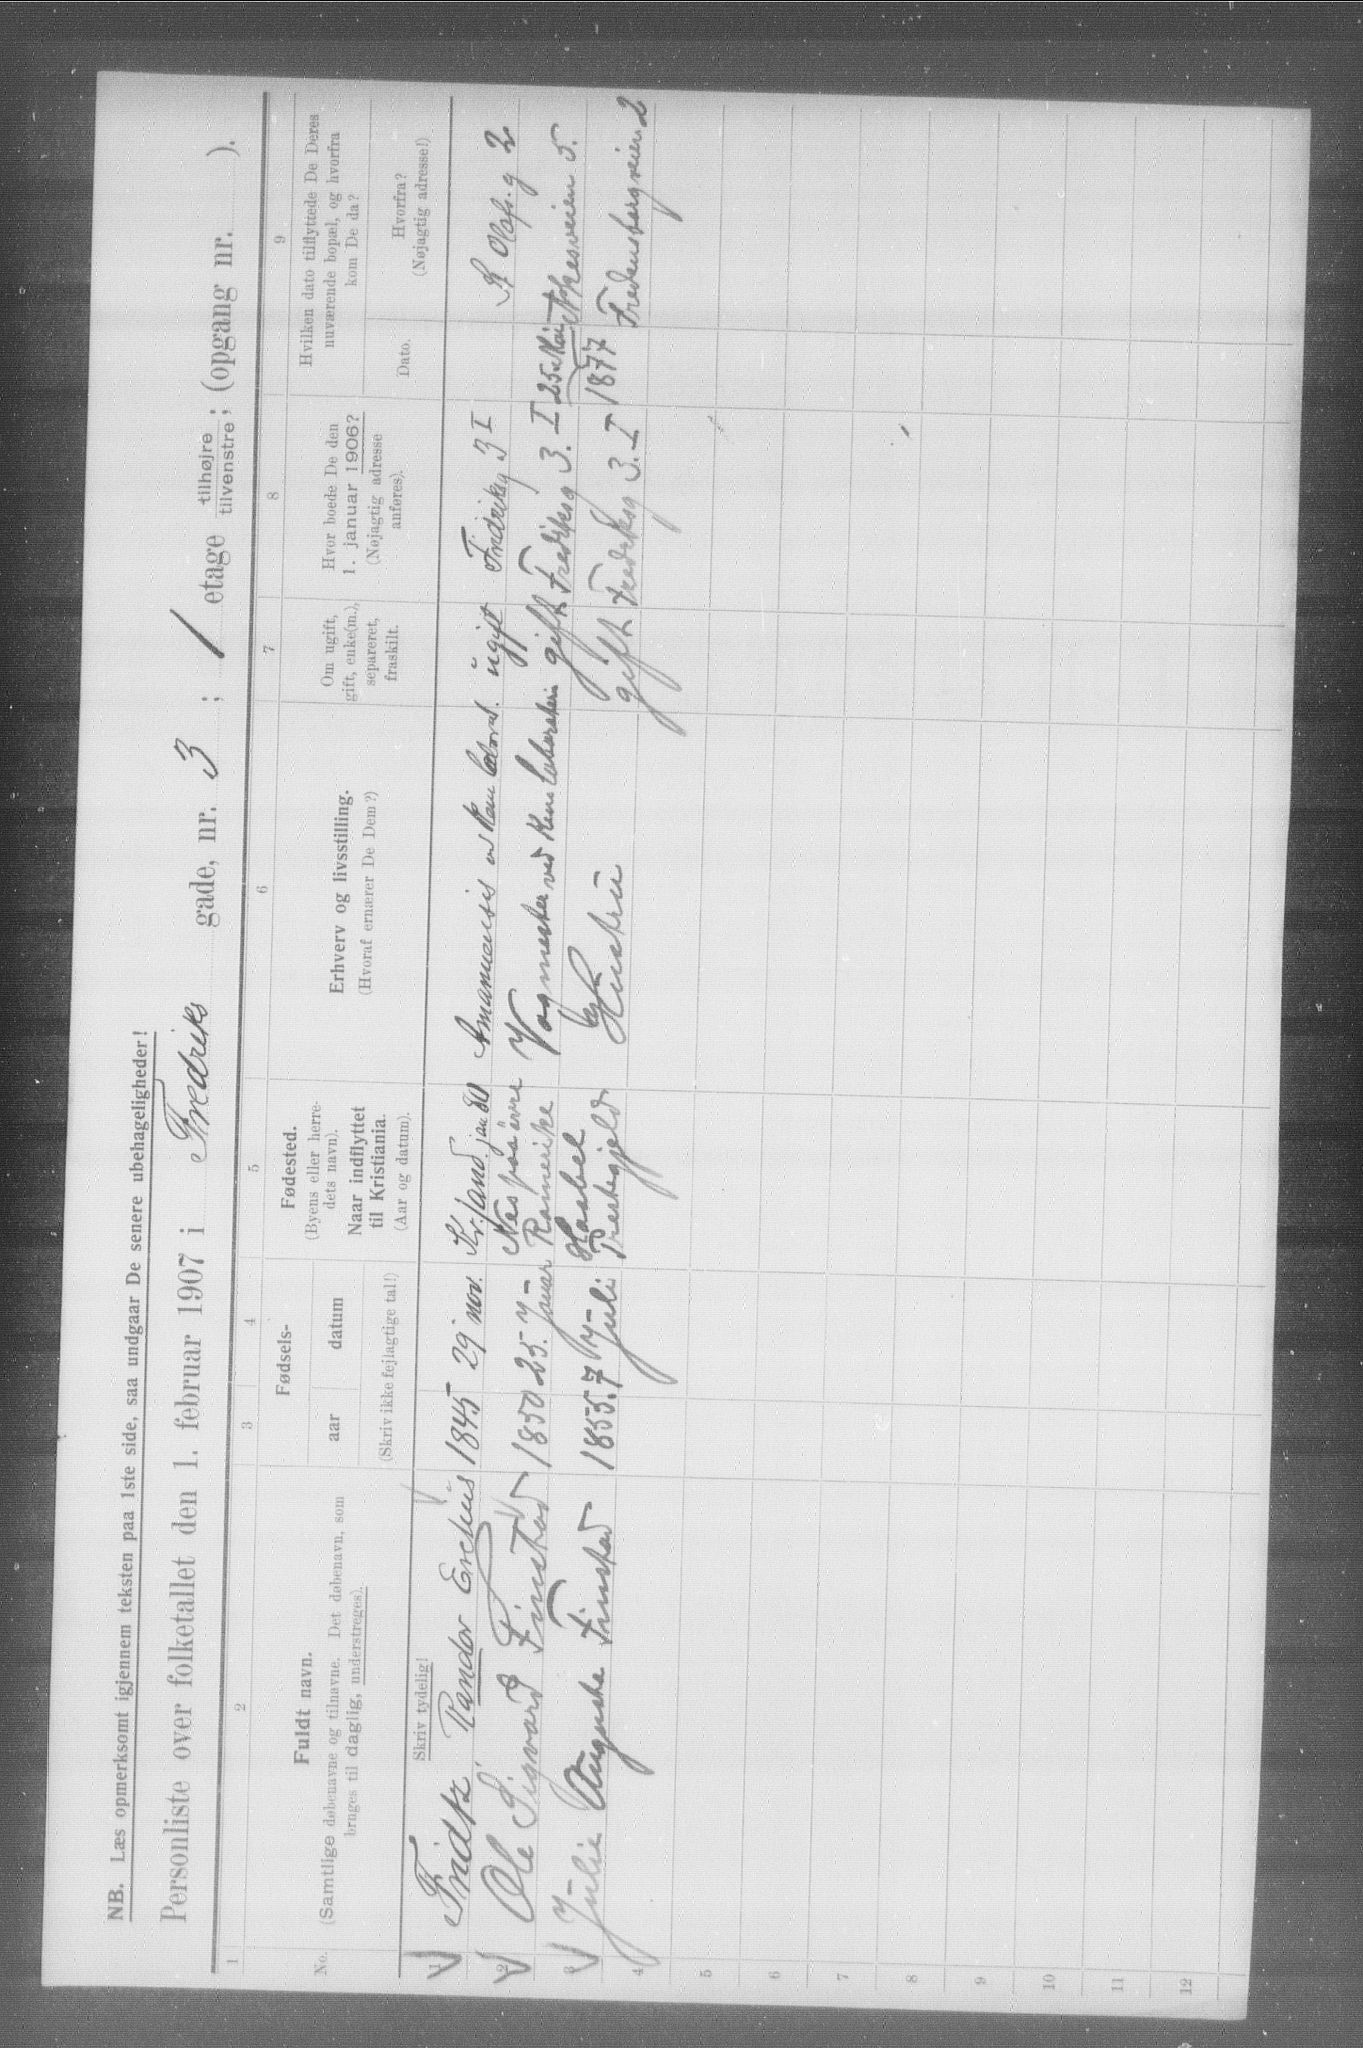 NB. Læs opmerksomt igjennem teksten paa 1ste side, saa undgaar De senere ubehageligheder!
Personliste over folketallet den 1. februar 1907 i Fredriks gade, nr. 3 ; 1 etage tilhøjre tilvenstre; (opgang nr. ).
1 2 3 4 5 6 7 8 9
No.
Fuldt navn.
(Samtlige døbenavne og tilnavne. Det døbenavn, som
bruges til daglig, understreges).
Fødsels-
aar datum
(Skriv ikke fejlagtige tal!)
Fødested.
(Byens eller herre-
dets navn).
Naar indflyttet
til Kristiania.
(Aar og datum).
Erhverv og livsstilling.
(Hvoraf ernærer De Dem?)
Om ugift,
gift, enke(m.),
separeret,
fraskilt.
Hvor boede De den
1. januar 1906?
(Nøjagtig adresse
anføres).
Hvilken dato tilflyttede De Deres
nuværende bopæl, og hvorfra
kom De da?
Dato.
Hvorfra?
(Nøjagtig adresse!)
Skriv tydelig!
1 Fridtz, Randor 1845 29 nov. Kr.sand. jan 80 Amanuensis ugift Fredriksg 3 I St Olafs. g 2
2 Ole Sigvard Finstad 1850 25. Januar Nes paa øvre Romerike Vagmester ved gift Fredriksg 3. I 25 Mai 1877 Akersveien 5.
3 Julie Augusta Finstad 1855. 7 Juli Præstegjeld Hustru gift Fredriksg 3. I Fredensborgveien 2
4
5
6
7
8
9
10
11
12